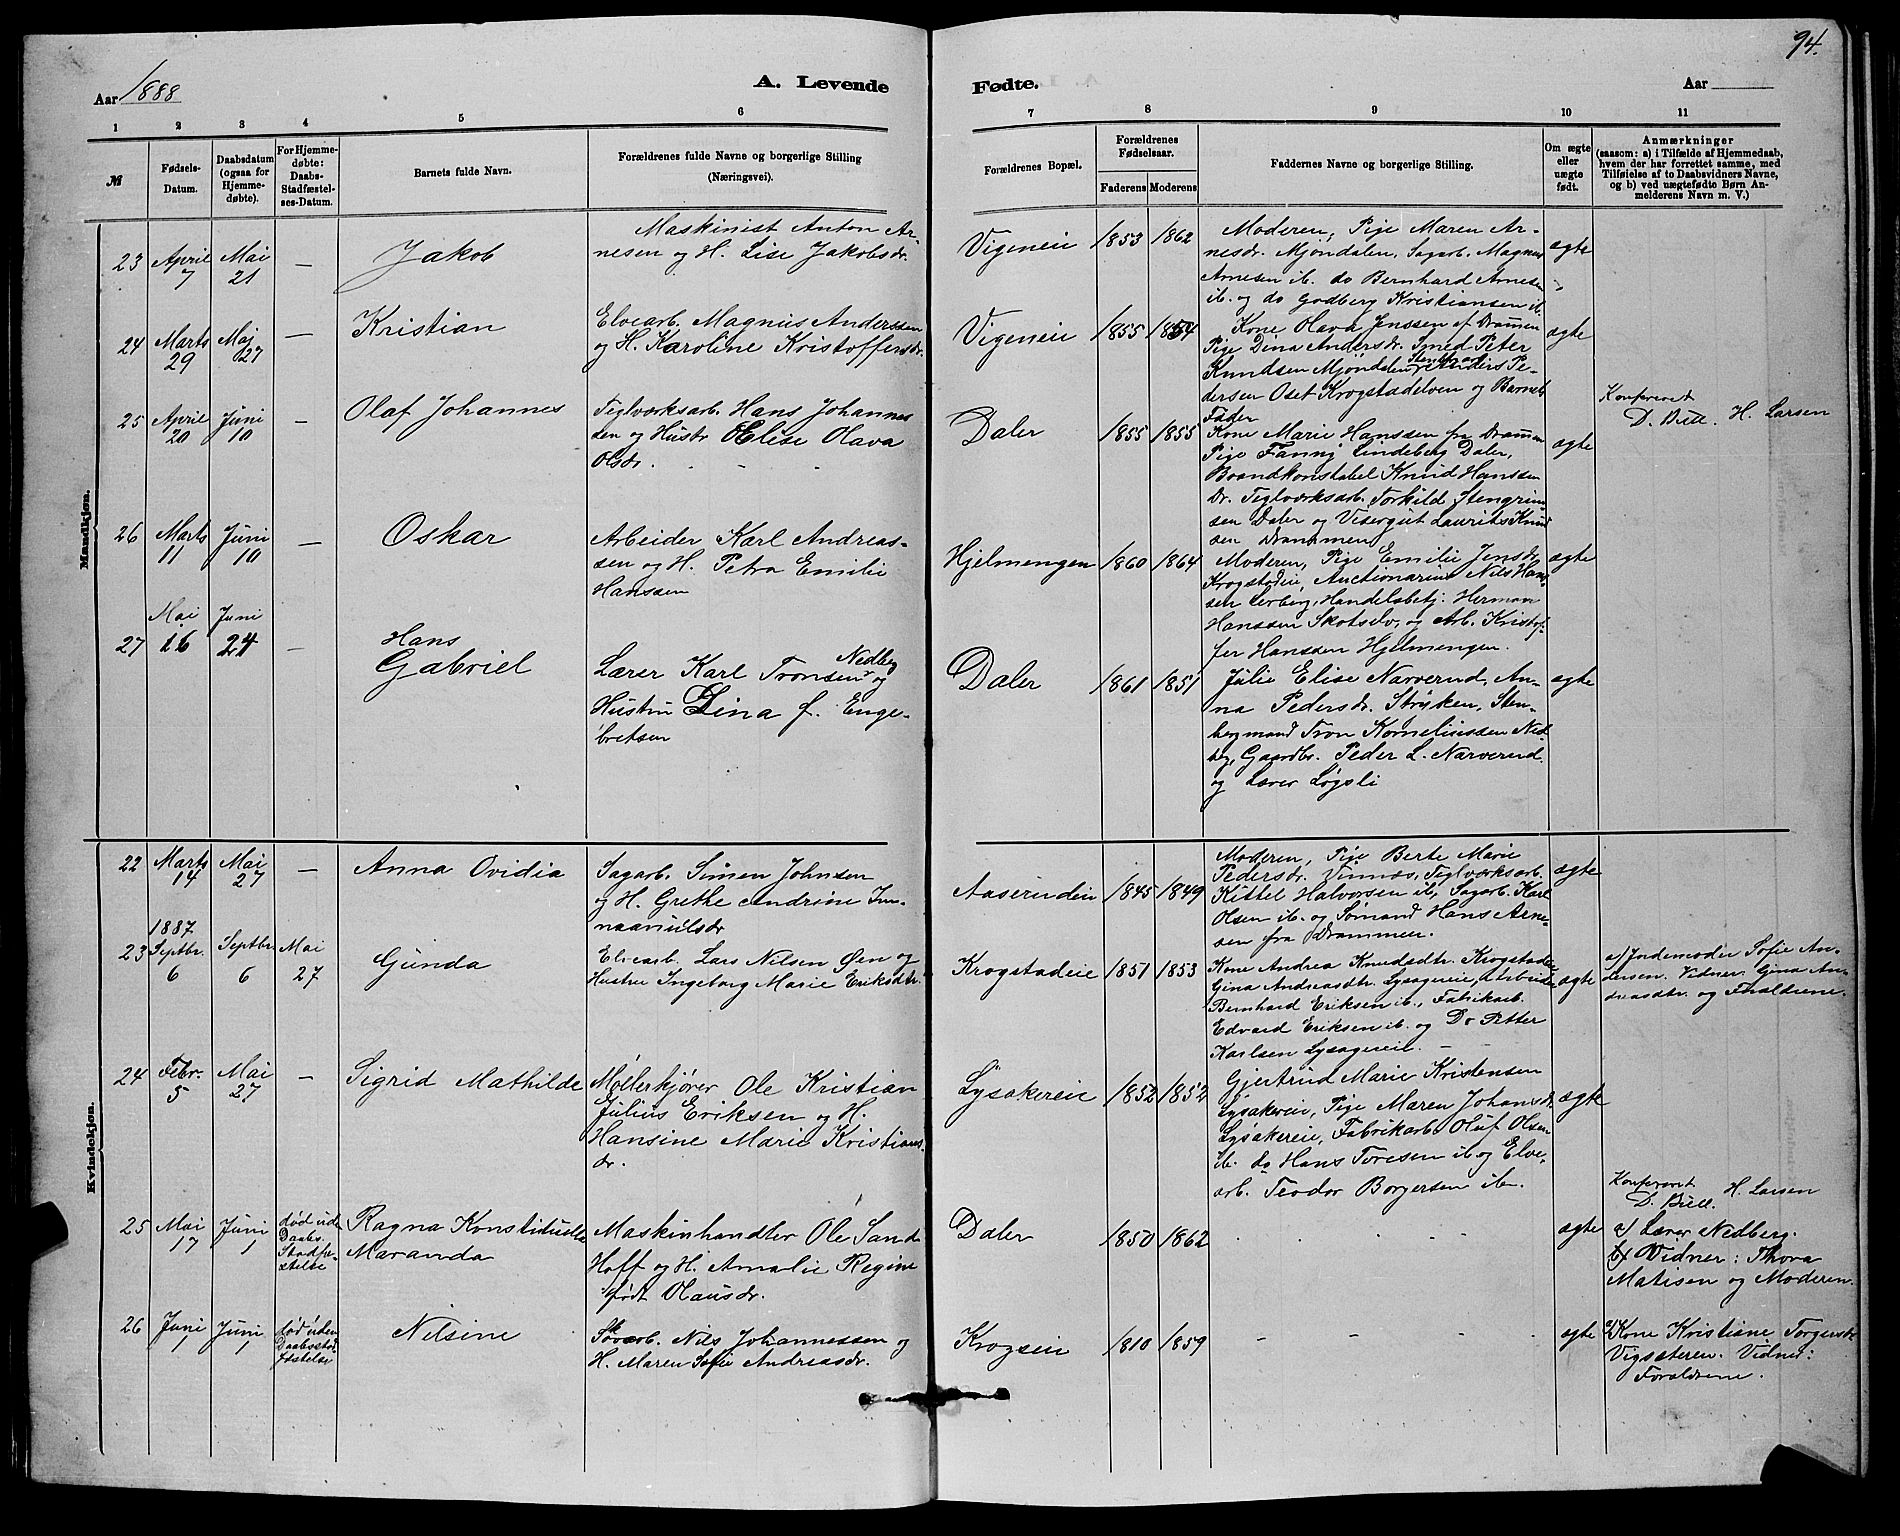 94.
Aar 1888
A. Levende
Fødte.
Aar
1 2 3 4 5 6
7 8 9 10 11
№
Fødsels-Datum.
Daabsdatum (ogsaa for Hjemme-døbte).
For Hjemme-døbte: Daabs-Stadfæstel-ses-Datum.
Barnets fulde Navn.
Forældrenes fulde Navne og borgerlige Stilling (Næringsvei).
Forældrenes Bopæl.
Forældrenes Fødselsaar.
Faderens Moderens
Faddernes Navne og borgerlige Stilling.
Om ægte eller uægte født.
Anmærkninger
(saasom: a) i Tilfælde af Hjemmedaab,
hvem der har forrettet samme, med
Tilføielse af to Daabsvidners Navne,
og b) ved uægtefødte Børn An-
melderens Navn m. V.)
Mandkjøn.
23 April 7 Mai 21 —
Jakob
Maskinist Anton Ar-
nesen og H. Lise Jakobsdr.
Vigeneie 1853 1862
Moderen, Pige Maren Ar-
nesdr. Mjøndalen, Sagarb. Magnus
Arnesen ib. do Bernhard Arnesen
ib. og do Godberg Kristiansen ib.
ægte
24 Marts 29 Maj 27 —
Kristian
Elvearb. Magnus Anderssen
og H. Karoline Kristoffersdr.
Vigeneie 1855 1854
Kone Olava Jenssen af Drammen
Pige Dina Andersdr. Smed Peter
Knudsen Mjøndalen Anders Pe-
dersen Oset Krogstadelven og Barnets
Fader
ægte
25 April 20 Juni 10 —
Olaf Johannes
Teglværksarb. Hans Johannes
sen og Hustr Elise Olava
Olsdr.
Daler 1855 1855
Kone Marie Hanssen fra Drammen
Pige Fanny Lindeberg Daler,
Brandkonstabel Knud Hanssen
Dr. Teglværksarb. Torkild Stengrim-
sen Daler og Visergut Laurits Knud
sen Drammen
ægte
Konfereret
D. Bull. H. Larsen
26 Marts 11 Juni 10 —
Oskar
Arbeider Karl Andreas-
sen og H. Petra Emilie
Hanssen
Hjelmengen 1860 1864
Moderen, Pige Emilie Jensdr.
Krogstadeie, Auctionarius Nils Hans-
sen Lerberg, Handelsbetj. Herman
Hanssen Skotselv, og Arb. Kristof-
fer Hanssen Hjelmengen.
ægte
27 Mai 16 Juni 24 —
Hans
Gabriel
Lærer Karl Tronsen Nedberg og
Hustru Lina f. Enge-
bretsen
Daler 1861 1851
Julie Elise Narverud, An-
na Pedersdr. Stryken, Sten-
bergmand Tron Korneliussen Ned-
beg, Gaardbr. Peder L. Narverud
og Lærer Løgsli
ægte
Kvindekjøn.
22 Marts 14 Mai 27 —
Anna Ovidia
Sagarb. Simen Johnsen
og H. Grethe Andrine Im-
Aaserudeie 1845 1849
Moderen, Pige Berte Marie
Pedersdr. Vinnæs, Teglværksarb.
Kittel Halvorsen ib, Sagarb. Karl
Olsen ib. og Sømand Hans Arne-
sen fra Drammen.
ægte
1887
23 Septbr. 6 Septbr. 6 Mai 27
Gunda
Elvearb. Lars Nilsen Øen og
Hustru Ingeborg Marie Eriksdtr.
Krogstadeie 1851 1853
Kone Andrea Knudsdtr. Krogstadeie
Gina Andreasdtr. Lysagereie, Arbeider
Bernhard Eriksen ib., Fabrikarb.
Edvard Eriksen ib. og Do Petter
Karlsen Lysagereie.
ægte
a) Jordemoder Sofie An-
dersen. Vidner: Gina An-
dreasdtr. og Forældrene.
24 Febr. 5 Mai 27 —
Sigrid Mathilde
Møllerkjører Ole Kristian
Julius Eriksen og H.
Hansine Marie Kristians
dr.
Lysakereie 1852 1852
Gjertrud Marie Kristensen
Lysakereie, Pige Maren Johansdr.
Lysakereie, Fabrikarb. Oluf Olsen
ib. do Hans Toresen ib og Elve-
arb. Teodor Borgersen ib.
ægte
Konfereret
D. Bull. H. Larsen
25 Mai 17 Juni 1 død uden Daabs. Stadfæ-stelse
Ragna
Maranda
Maskinhandler Ole Sand
Hoff og H. Amalie Regine
født Olausdr.
Daler 1850 1862
ægte
a) Lærer Nedberg.
b) Vidner: Thora
Matisen og Moderen.
26 Juni 1 Juni 1 død uden Daabsstad fæstelse
Nilsine
Nils Johannessen og
H. Maren Sofie Andreasdr.
Krogseie 1810 1859
ægte
a) Kone Kristiane Torgersdr
Vigsæteren. Vidner:
Forældrene.